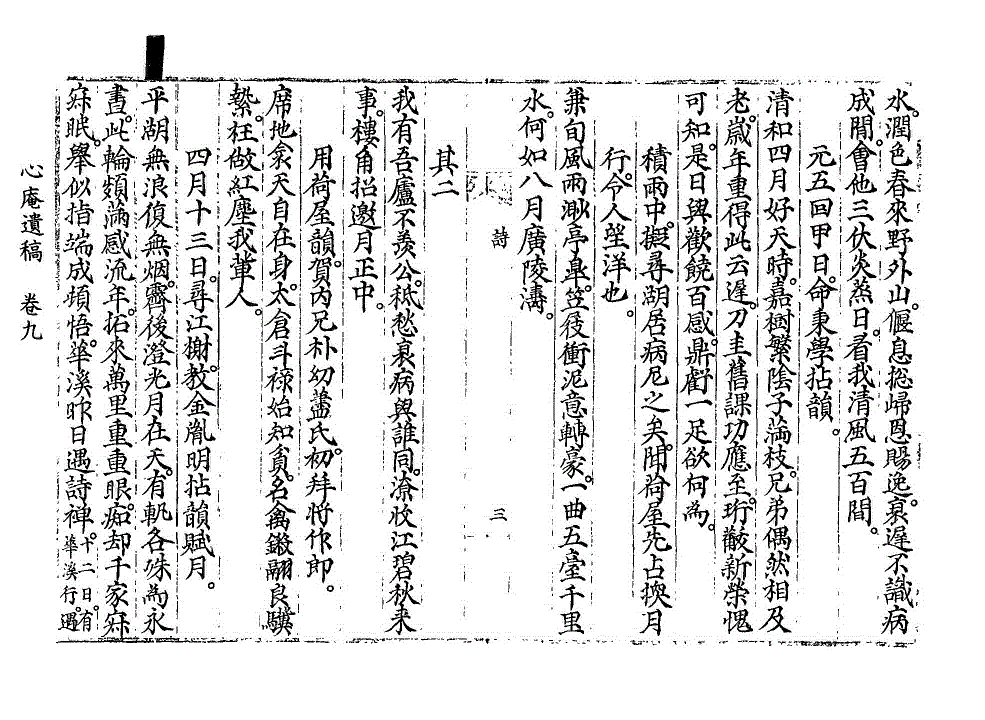 水潤色春來野外山。偃息捴歸恩賜逸。衰遲不識病
成閒。會他三伏炎蒸日。看我淸風五百間。
元五回甲日。命東學拈韻。
淸和四月好天時。嘉樹繁陰子滿枝。兄弟偶然相及
老。歲年重得此云遲。刀圭舊課功應至。珩韍新榮愧
可知。是日興歡饒百感。鼎一足欲何爲。
積雨中。擬尋湖居病尼之矣。聞荷屋先占換月
行。令人望洋也。
兼旬風雨渺亭臯。笠屐衝泥意轉豪。一曲五臺千里
水。何如八月廣陵濤。
其二
我有吾廬不羨公。秪愁衰病與誰同。潦收江碧秋來
事。樓角招邀月正中。
用荷屋韻。賀內兄朴幼藎氏。初拜將作郞。
席地衾天自在身。太倉斗祿始知貧。名禽鎩翮良驥
縶。枉做紅塵我輩人。
四月十三日。尋江榭。敎金胤明拈韻賦月。
平湖無浪復無烟。霽後澄光月在天。有各殊爲永
晝。此輪頻滿感流年。拓來萬里重重眼。痴却千家寂
寂眠。擧似指端成頓悟。華溪昨日遇詩禪。十二日。有華溪行。遇
詩
三
心庵遺稿 卷九